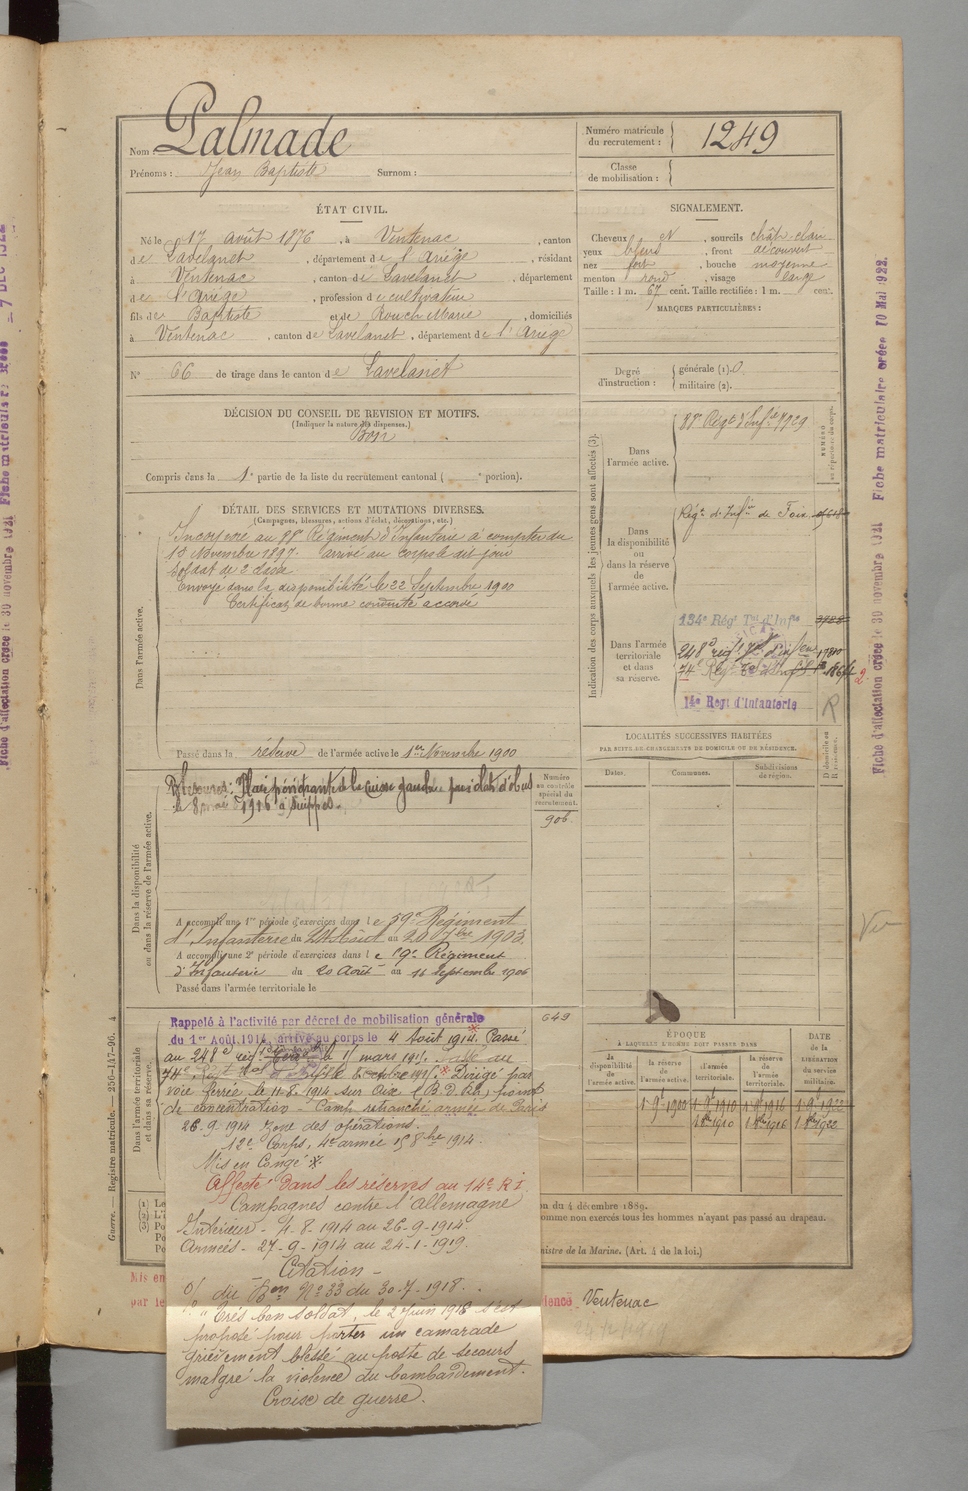 Nom : Palmade
Prénoms : Jean Baptiste Surnom :
Numéro matricule du recrutement : 1249
Classe de mobilisation :
ÉTAT CIVIL.
Né le 17 août 1876, à Ventenac, canton
de Lavelanet, département de l'Ariège, résidant
à Ventenac, canton de Lavelanet, département
de l'Ariège, profession de cultivateur
fils de Baptiste et de Rouch Marie, domiciliés
à Ventenac, canton de Lavelanet, département de l'Ariège
N° 66 de tirage dans le canton de Lavelanet
SIGNALEMENT.
Cheveux et, sourcils chât-clair
yeux bleus, front découvert
nez fort, bouche moyenne
menton rond, visage large
Taille : 1 m. 67 cent. Taille rectifiée : 1 m. cent.
MARQUES PARTICULIÈRES :
Degré d'instruction : générale (1). 0.
militaire (2).
DÉCISION DU CONSEIL DE REVISION ET MOTIFS.
(Indiquer la nature des dispenses.)
Bon
Compris dans la 1e partie de la liste du recrutement cantonal ( e portion).
DÉTAIL DES SERVICES ET MUTATIONS DIVERSES.
(Campagnes, blessures, actions d'éclat, décorations, etc.)
Dans l'armée active.
Incorporé au 88e Régiment d'Infanterie à compter du
13 Novembre 1897. arrivé au corps le dit jour
Soldat de 2e classe
Envoyé dans la disponibilité le 22 Septembre 1900
Certificat de bonne conduite accordé
Passé dans la réserve de l'armée active le 1er Novembre 1900
Dans la disponibilité ou dans la réserve de l'armée active.
Blessures : Plaie pénétrante de la cuisse gauche par éclat d'obus
le 8 mai 1916 à Suippes.
Numéro au contrôle spécial du recrutement.
906
A accompli une 1re période d'exercices dans le 59e Régiment
d'Infanterie du 24 Août au 20 7bre 1903.
A accompli une 2e période d'exercices dans le 59e Régiment
d'Infanterie du 20 Août au 16 septembre 1906
Passé dans l'armée territoriale le
Dans l'armée territoriale et dans sa réserve.
649
Rappelé à l'activité par décret de mobilisation générale
du 1er Août 1914, arrivé au corps le 4 Août 1914. Passé
au 248e rég. le 11 mars 1915. Passé au
74e Regt Tal Dirigé par
voie ferrée le 11-8-1914 sur Oise (B.d.Rh) point
de concentration - Camp retranché armée de Paris
26.9.1914 zone des opérations.
12e Corps, 4e armée 15 8bre 1914.
Mis en Congé
Affecté dans les réserves au 14e R.I.
Campagnes contre l'allemagne
Intérieur - 4.8.1914 au 26-9-1914
Armées - 27-9-1914 au 24-1-1919.
Citation -
O/ du Bon N° 33 du 30.7.1918.
"Très bon soldat, le 2 Juin 1918 s'est
proposé pour porter un camarade
grièvement blessé au poste de secours
malgré la violence du bombardement.
Croix de guerre.
Indication des corps auxquels les jeunes gens sont affectés (3).
NUMÉRO au répertoire du corps.
Dans l'armée active.
88e Régt d'Infie 7729
Dans la disponibilité ou dans la réserve de l'armée active.
Régt d'Infie de Foix
Dans l'armée territoriale et dans sa réserve.
134e Régt Tal d'Infie
248e rég
74e Regt
14e Regt d'Infanterie
R
LOCALITÉS SUCCESSIVES HABITÉES
PAR SUITE DE CHANGEMENTS DE DOMICILE OU DE RÉSIDENCE.
Dates. Communes. Subdivisions de région. D domicile ou R résidence.
Vu
ÉPOQUE
À LAQUELLE L'HOMME DOIT PASSER DANS
DATE de la LIBÉRATION du service militaire.
la disponibilité de l'armée active. la réserve de l'armée active. l'armée territoriale. la réserve de l'armée territoriale.
1 9e 1900 1 9e 1910 1 9e 1916 1 9e 1922
1 8bre 1910 1 8bre 1916 1 8bre 1922
on du 4 décembre 1889.
omme non exercés tous les hommes n'ayant pas passé au drapeau.
nistre de la Marine. (Art. 4 de la loi.)
(1) Le
(2) L'i
(3) Po
Po
Mis en
par le
idence Ventenac
Guerre. — Registre matricule. — 256-147-96. 4
Fiche d'affectation créée le 30 novembre 1921 Fiche matriculaire créée 10 Mai 1922.
Fiche d'affectation créée le 30 novembre 1921 Fiche matricule
7 DEC 1922